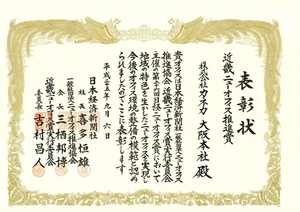 表彰状
近畿ニューオフィス推進賞
株式会社カネカ 大阪本社 殿
貴オフィスは日本経済新聞社一般社団法人ニューオフィス
推進協会近畿ニューオフィス賞実行委員会
主催の第二十六回ニューオフィス賞において
地域の特色を生かしたニューオフィスを実現し
今後のオフィス環境の整備の模範と認め
られましたのでここに表彰します
平成二十五年九月六日
日本経済新聞社
社長 喜多恒雄
一般社団法人ニューオフィス推進協会
会長 三栖邦博
近畿ニューオフィス賞実行委員会
委員長 吉村昌人